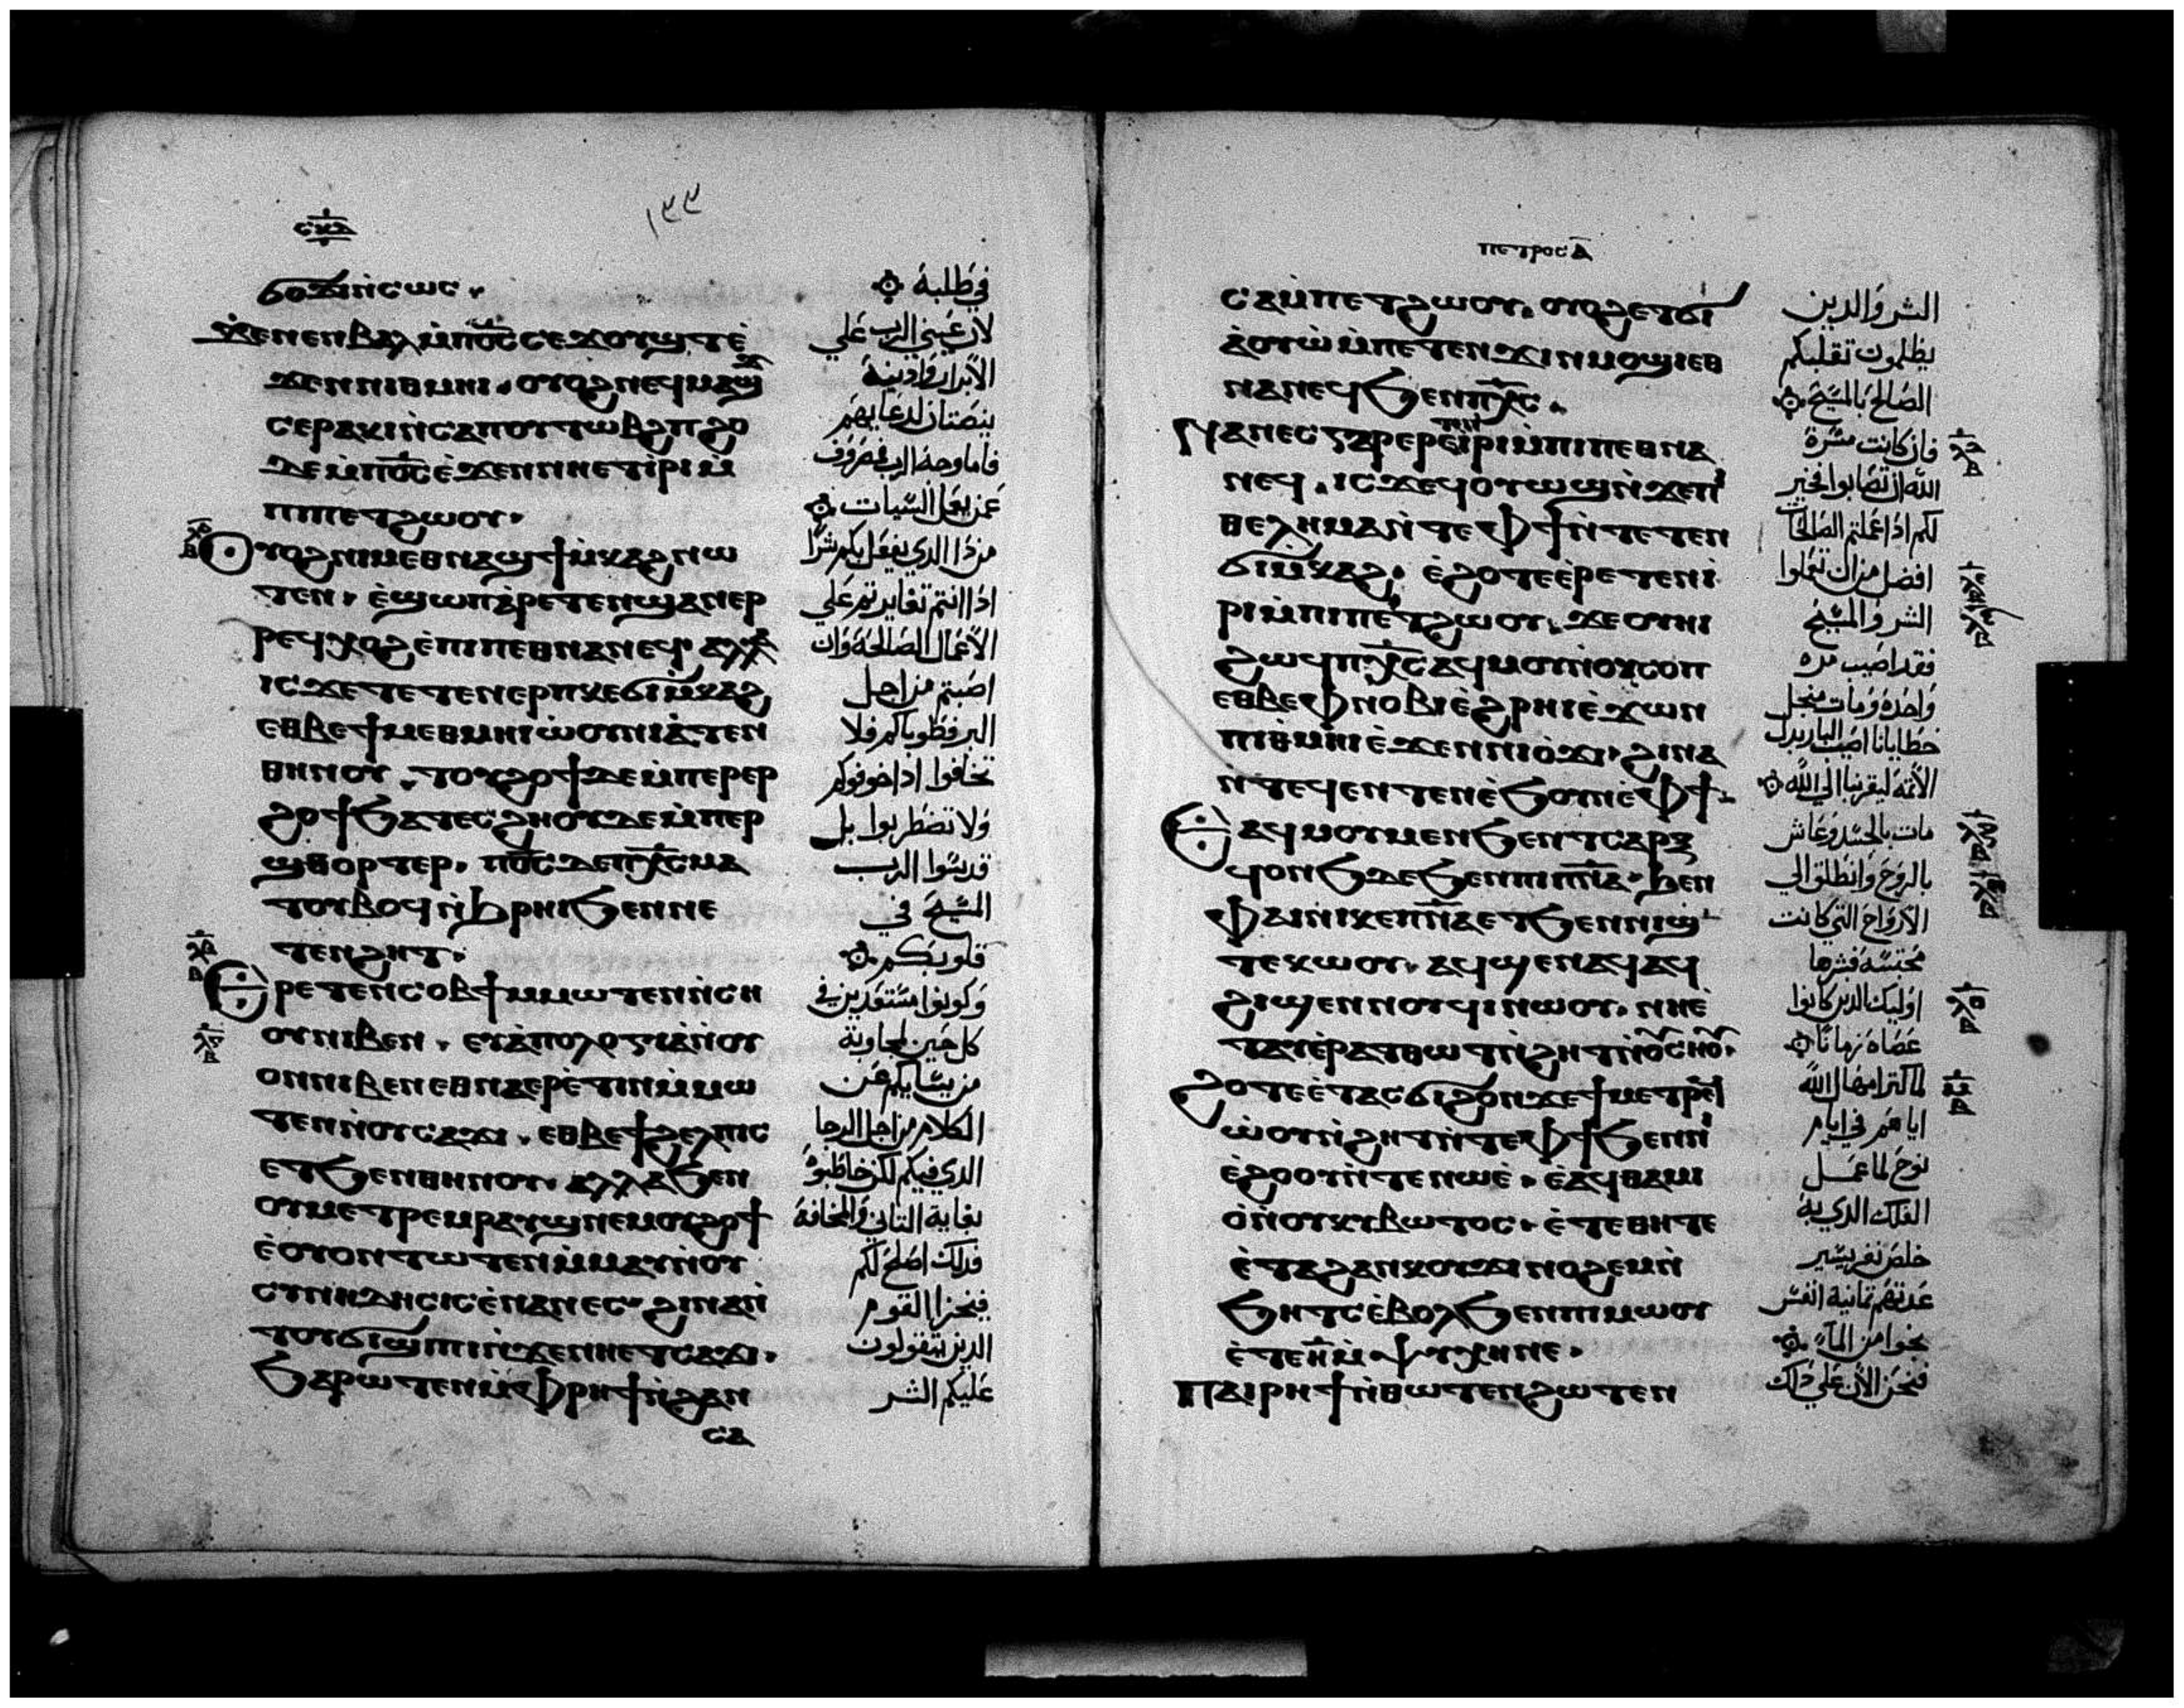 ⲥⲕⲁ
١٣٣
ϭⲟϫⲓ ⲛ̀ⲥⲱⲥ
ϫⲉ ⲛⲉⲛⲃⲁⲗ ⲙ̀ⲡⲟ̅ⲥ̅ ⲥⲉϫⲟⲩϣⲧ ⲉ̀
ϫⲉⲛ ⲛⲓⲑⲙⲏⲓ ⲟⲩⲟϩ ⲛⲉϥⲙⲁϣϫ
ⲥⲉⲣⲁⲕⲓ ⲛ̀ⲥⲁ ⲡⲟⲩⲧⲱⲃϩ ⲡϩⲟ
ⲇⲉ ⲙ̀ⲡⲟ̅ⲥ̅ ⲉ̀ϫⲉⲛ ⲛⲏⲉⲧⲓ̀ⲣⲓ ⲙ
ⲡⲓⲡⲉⲧϩⲱⲟⲩ
ⲟⲩⲟϩ ⲛⲓⲙ ⲉⲑⲛⲁϣϯ ⲙ̀ⲕⲁϩ ⲛⲱ
ⲧⲉⲛ ⲉ̀ϣⲱⲡ ⲁ̀ⲣⲉⲧⲉⲛϣⲁⲛⲉⲣ
ⲣⲉϥⲭⲟϩ ⲉ̀ⲡⲓⲡⲉⲑⲛⲁⲛⲉϥ ⲁⲗⲗⲁ
ⲓⲥϫⲉ ⲧⲉⲧⲉⲛⲉⲣⲡⲕⲉϭⲓⲙ̀ⲕⲁϩ
ⲉⲑⲃⲉ ϯⲙⲉⲑⲙⲏⲓ ⲱ̀ⲟⲩⲛⲓⲁ̀ⲧⲉⲛ
ⲑⲏⲛⲟⲩ ⲧⲟⲩϩⲟϯ ⲇⲉ ⲙ̀ⲡⲉⲣⲉⲣ
ϩⲟϯ ϧⲁⲧⲉⲥϩⲏ ⲟⲩⲇⲉ ⲙ̀ⲡⲉⲣ
ϣⲑⲟⲣⲧⲉⲣ ⲡⲟ̅ⲥ̅ ⲇⲉ ⲡⲭ̅ⲥ̅ ⲙⲁ
ⲧⲟⲩⲃⲟϥ ⲛ̀ϩⲣⲏⲓ ϧⲉⲛ ⲛⲉ
ⲧⲉⲛϩⲏⲧ
ⲉⲣⲉⲧⲉⲛⲥⲟⲃϯ ⲙⲙⲱⲧⲉⲛ ⲛ̀ⲥⲏ
ⲟⲩ ⲛⲓⲃⲉⲛ ⲉⲩⲁ̀ⲡⲟⲗⲟⲅⲓⲁ̀ ⲛ̀ⲟⲩ
ⲟⲛ ⲛⲓⲃⲉⲛ ⲉⲑⲛⲁⲉⲣⲉ̀ⲧⲓⲛ ⲙ̀ⲙⲱ
ⲧⲉⲛ ⲛ̀ⲟⲩⲥⲁϫⲓ ⲉⲑⲃⲉ ϯϩⲉⲗⲡⲓⲥ
ⲉⲧϧⲉⲛ ⲑⲏⲛⲟⲩ ⲁⲗⲗⲁ ϧⲉⲛ
ⲟⲩⲙⲉⲧⲣⲉⲙⲣⲁⲩϣ ⲛⲉⲙ ⲟⲩϩⲟϯ
ⲉ̀ⲟⲩⲟⲛⲧⲱⲧⲉⲛ ⲙ̀ⲙⲁⲩ ⲛ̀ⲟⲩ
ⲥⲩⲛⲏⲇⲏⲥⲓⲥ ⲉ̀ⲛⲁⲛⲉⲥ ϩⲓⲛⲁ ⲛ̀
ⲧⲟⲩϭⲓϣⲓⲡⲓ ⲛ̀ϫⲉ ⲛⲏⲉⲧⲥⲁϫⲓ
ϧⲁⲣⲱⲧⲉⲛ ⲙ̀ⲫⲣⲏϯ ⲛ̀ϩⲁⲛ
ⲥⲁ
في طلبة
لان عيني الرب علي
الابرار واذنية
ينصتان لدعايهم
فاما وجه الرب فمصروف
عمن يعمل السيات
من ذا الذي يفعل بكم شرا
اذا انتم تغايرتم علي
الاعمال الصالحة وان
اصبتم من اجل
البر فطوباكم فلا
تخافوا اذا خوفوكم
ولا تضطربوا بل
قدسوا الرب
المسيح في
قلوبكم
وكونوا مستعدين في
كل حين لمجاوبة
من يسايلكم عن
الكلام من اجل الرجا
الذي فيكم لكن خاطبوه
بغاية التاني والمخافة
فذلك اصلح لكم
فيخزا القوم
الذين يتقولون
عليكم الشر
ⲡⲉⲧⲣⲟⲥ ⲁ̅
ⲥⲁ ⲙ̀ⲡⲉⲧϩⲱⲟⲩ ⲟⲩⲟϩ ⲉⲧϭⲓ
ⲁ̀ⲟⲩⲱ̀ ⲙ̀ⲡⲉⲧⲉⲛϫⲓⲛⲙⲟϣⲓ ⲉⲑ
ⲛⲁⲛⲉϥ ϧⲉⲛ ⲡⲭ̅ⲥ̅
ⲛⲁⲛⲉⲥ ⲅⲁⲣ ⲉⲣⲉⲧⲉⲛⲓⲣⲓ ⲙ̀ⲡⲓⲡⲉⲑⲛⲁ
ⲛⲉϥ ⲓⲥϫⲉ ϥⲟⲩⲱϣ ⲛ̀ϫⲉ ⲡⲓ
ⲑⲉⲗⲏⲙⲁ ⲛ̀ⲧⲉ ⲫϯ ⲛ̀ⲧⲉⲧⲉⲛ
ϭⲓⲙ̀ⲕⲁϩ ⲉ̀ϩⲟⲧⲉ ⲉ̀ⲣⲉⲧⲉⲛⲓ̀
ⲣⲓ ⲙ̀ⲡⲓⲡⲉⲧϩⲱⲟⲩ ϫⲉ ⲟⲩⲏⲓ
ϩⲱϥ ⲡⲭ̅ⲥ̅ ⲁϥⲙⲟⲩ ⲛ̀ⲟⲩⲥⲟⲡ
ⲉⲑⲃⲉ ⲫⲛⲟⲃⲓ ⲉ̀ϩⲣⲏⲓ ⲉ̀ϫⲱⲛ
ⲡⲓⲑⲙⲏⲓ ⲉ̀ϫⲉⲛ ⲛⲓⲟ̀ϫⲓ ϩⲓⲛⲁ
ⲛⲧⲉϥⲉⲛⲧⲉⲛ ⲉ̀ϧⲟⲩⲛ ⲉ̀ⲫϯ
ⲉⲁϥⲙⲟⲩ ⲙⲉⲛ ϧⲉⲛ ⲧⲥⲁⲣⲝ
ϥⲟⲛϧ ⲇⲉ ϧⲉⲛ ⲡⲓⲡ̅ⲛ̅ⲁ̅ ϧⲉⲛ
ⲫⲁⲓ ⲛⲓⲕⲉⲡ̅ⲛ̅ⲁ̅ ⲉⲧϧⲉⲛ ⲡⲓϣ
ⲧⲉⲕⲱⲟⲩ ⲁϥϣⲉⲛⲁϥ ⲁϥ
ϩⲓϣⲉⲛⲛⲟⲩϥⲓ ⲛⲱⲟⲩ ⲛⲏⲉ̀
ⲧⲁⲩⲉ̀ⲣⲁⲧⲑⲱⲧ ⲛ̀ϩⲏⲧ ⲛ̀ⲟⲩⲥⲏⲟⲩ
ϩⲟⲧⲉ ⲉ̀ⲧⲁⲥϭⲓϩⲟ ⲛ̀ϫⲉ ϯⲙⲉⲧⲣⲉϥ
ⲱ̀ⲟⲩ ⲛ̀ϩⲏⲧ ⲛ̀ⲧⲉ ⲫϯ ϧⲉⲛ ⲛⲓ
ⲉ̀ϩⲟⲟⲩ ⲛ̀ⲧⲉ ⲛⲱⲉ̀ ⲉ̀ⲁϥⲑⲁⲙⲓ
ⲟ̀ ⲛ̀ⲟⲩⲕⲩⲃⲱⲧⲟⲥ ⲉ̀ⲧⲉ ⲑⲏ ⲧⲉ
ⲉ̀ⲧⲁ ϩⲁⲛⲕⲟⲩϫⲓ ⲛⲟϩⲉⲙ ⲛ̀
ϧⲏⲧⲥ ⲉ̀ⲃⲟⲗ ϧⲉⲛ ⲡⲓⲙⲱⲟⲩ
ⲉ̀ⲧⲉ ⲏ̅ ⲙ̀ⲯⲩⲭⲏ ⲛⲉ
ⲡⲁⲓⲣⲏϯ ⲛ̀ⲑⲱⲧⲉⲛ ϩⲱⲧⲉⲛ
الشر والذين
يظلمون تقلبكم
الصالح بالمسيح
فان كانت مسرة
الله ان تصابوا فخير
لكم اذا عملتم الصالحات
افضل من ان تعملوا
الشر والمسيح
فقد اصيب مره
واحدة ومات من اجل
خطايانا اصيب البار بدل
الاثمه ليقربنا الي الله
مات بالجسد وعاش
بالروح وانطلق الي
الارواح التي كانت
محتبسه فبشرها
اوليك الذين كانوا
عصاه زمانا
لما كثر امهال الله
اياهم في ايام
نوح لما عمل
الفلك الذي به
خلص نفر يسير
عدتهم ثمانية انفس
نجوا من الماء
فنحن الان علي ذلك